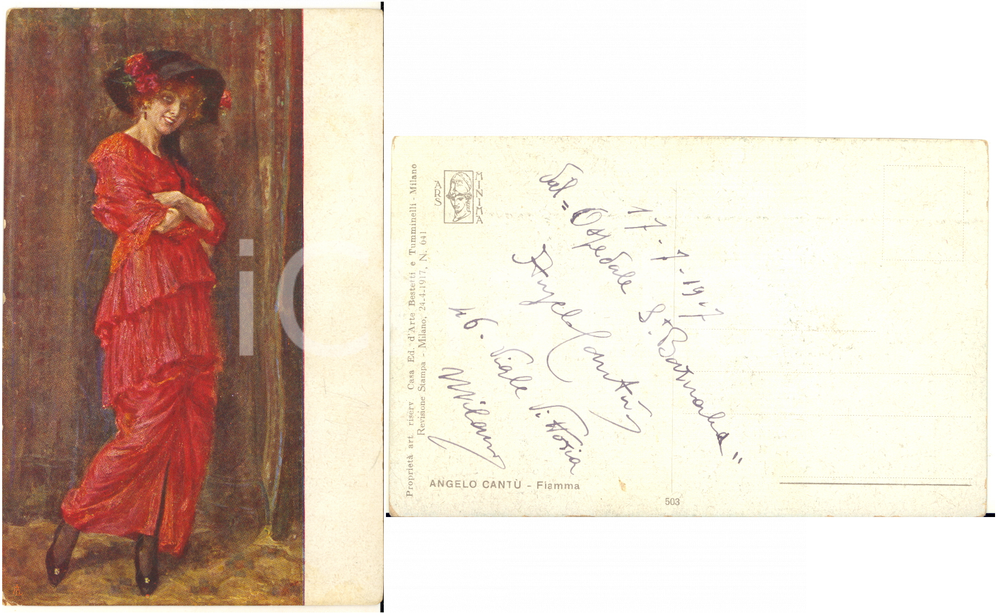 ARS
MINIMA
Proprietà art. riserv. Casa Ed. d'Arte Bestetti e Tumminelli - Milano
Revisione Stampa - Milano, 24.4.1917, N. 641
17-7-1917
Dal = Ospedale St. Barnaba"
Angelo Cantù
46. Viale Vittoria
Milano
ANGELO CANTÙ - Fiamma
503
iC